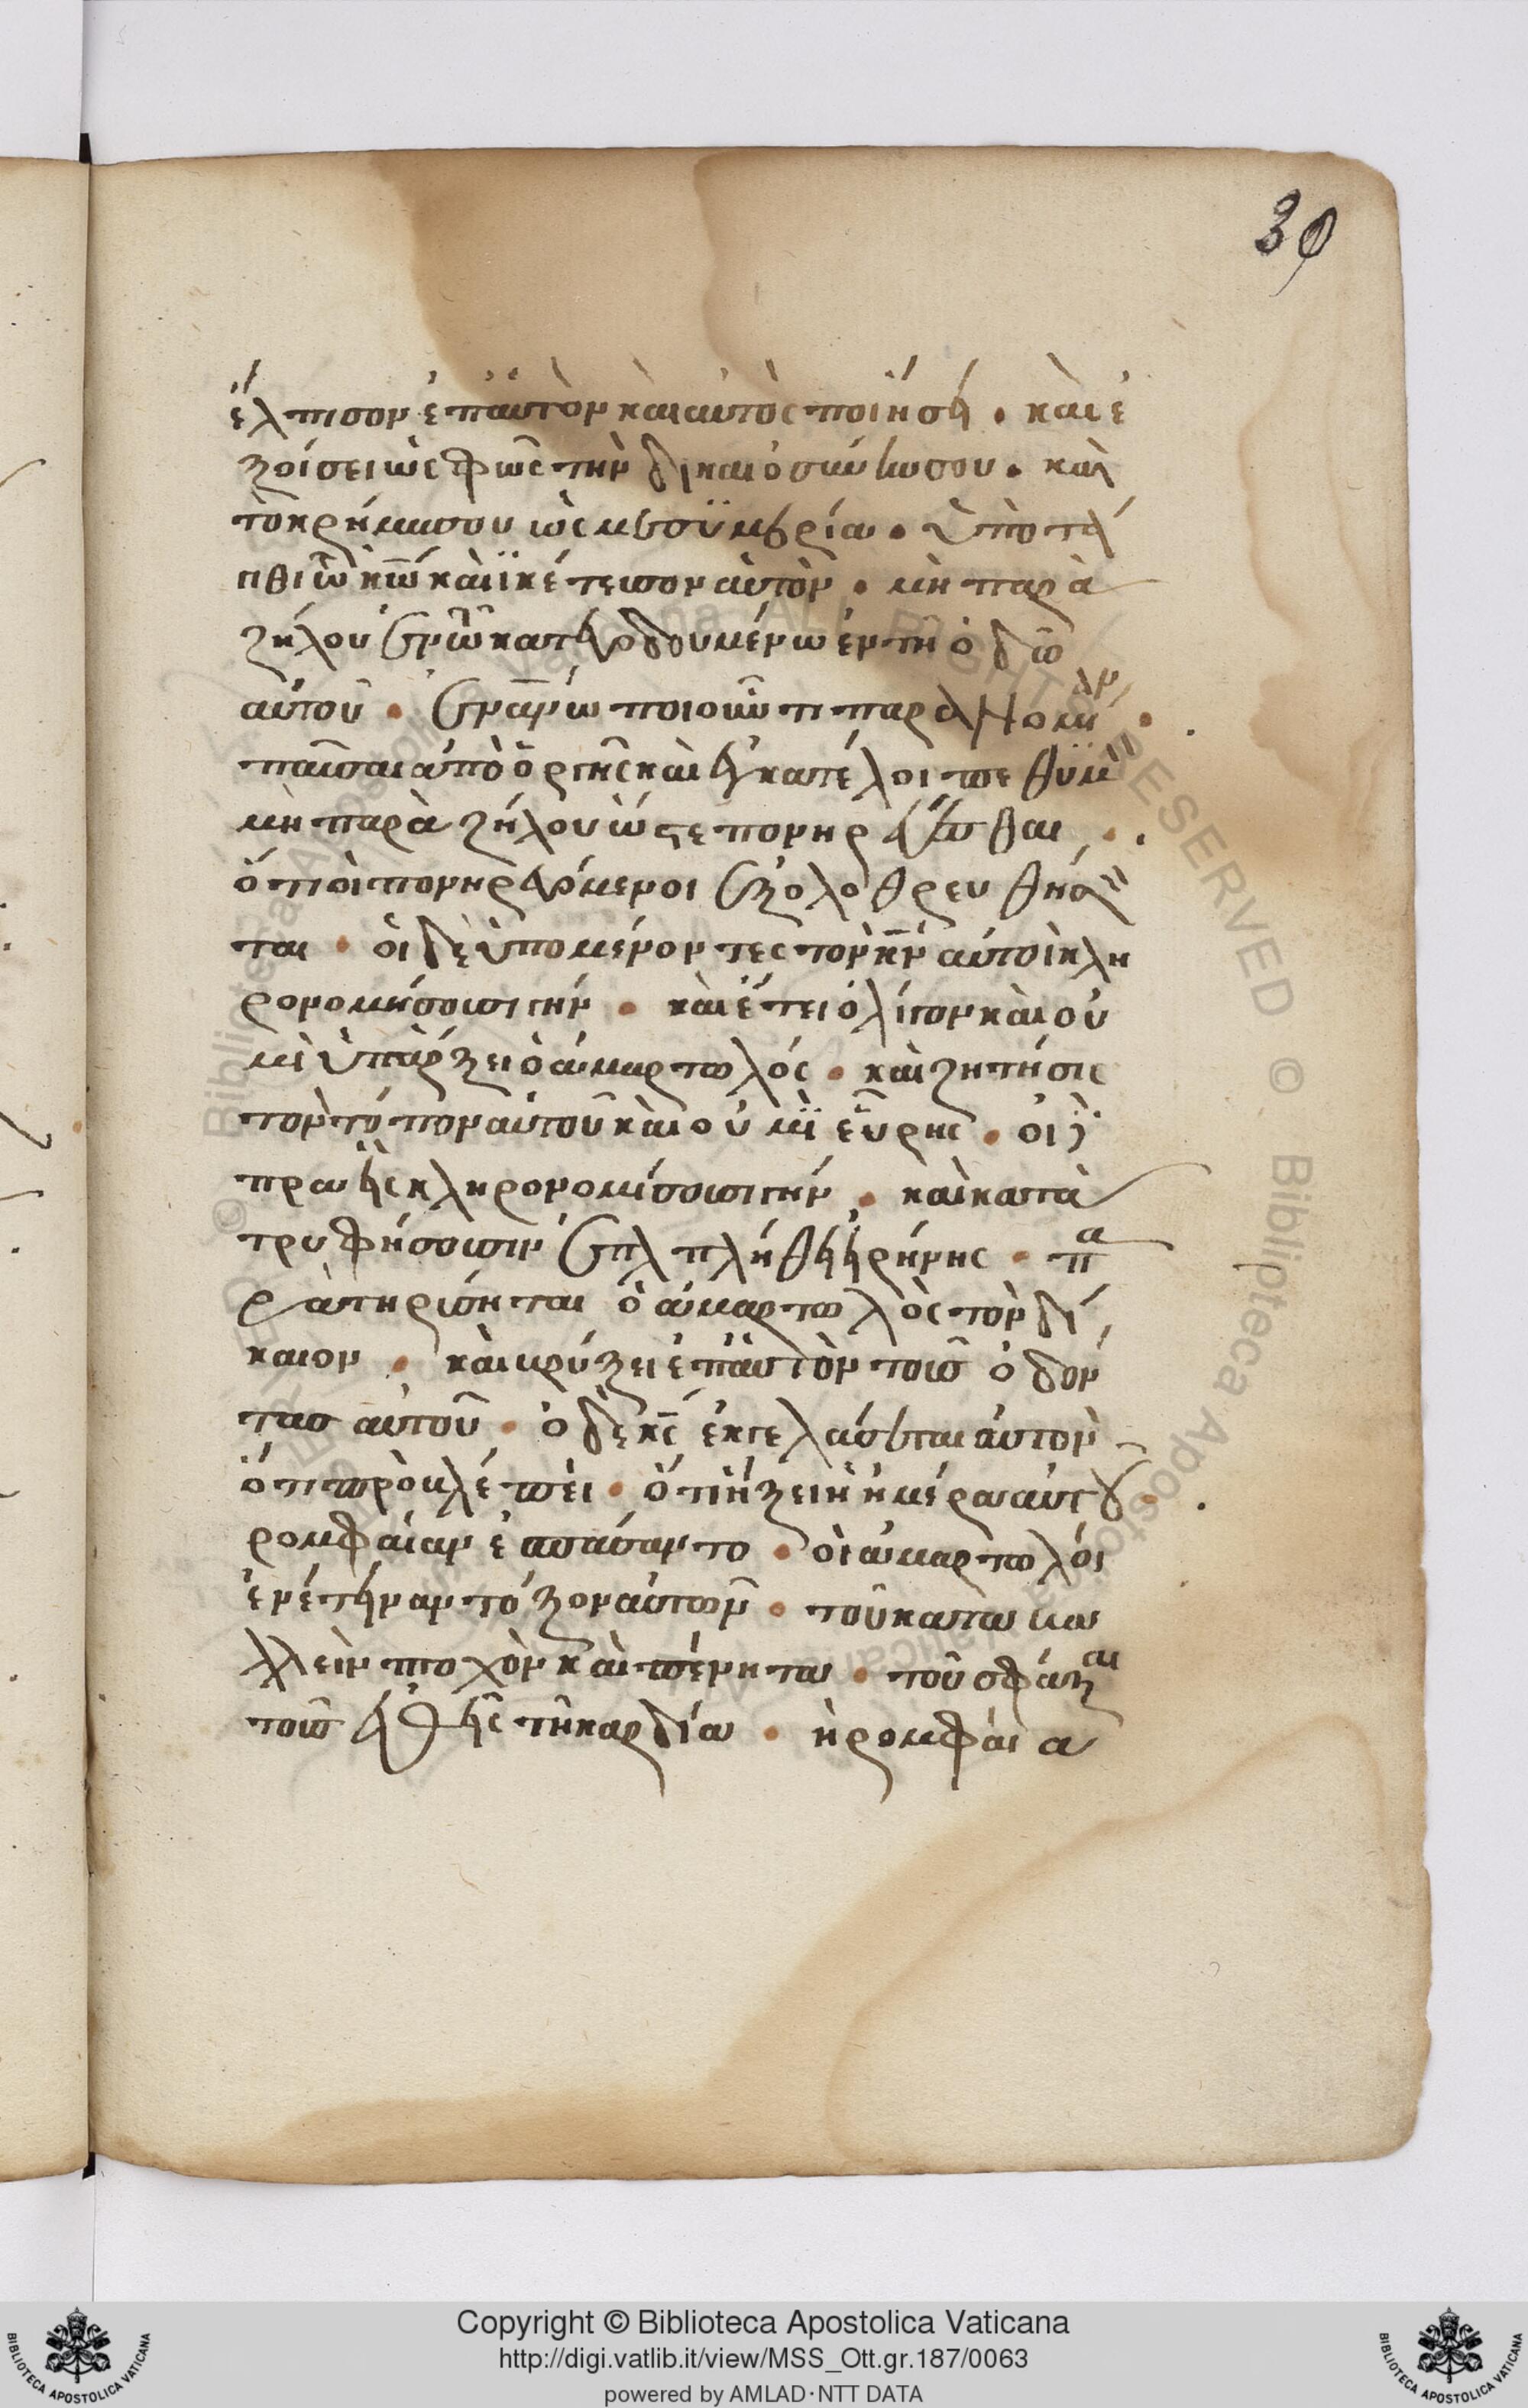 39
ἔλπισον ἐπ' αὐτὸν καὶ αὐτὸς ποιήσει . καὶ ἐ
ξοίσει ὡς φῶς τὴν δικαιοσύνην σου . καὶ
τὸ κρῆμα σου ὡς μεσϋμβρία . ὑποτά
γηθι τῶ κῶ καὶ ἱκέτευσον αὐτὸν . μὴ παρὰ
ζήλου ἐν τῶ κατευοδουμένω ἐν τῆ ὁδῶ
αὐτοῦ . ἐν ἀνω ποιοῦντι παρανομίαν .
παῦσαι ἀπὸ ὀργῆς καὶ ἐγκατέλοιπε θυμὸν
μὴ παρὰ ζήλου ὥστε πονηρεύεσθαι .
ὅτι οἱ πονηρευόμενοι ἐξολοθρευθήσον
ται . οἱ δὲ ὑπομένοντες τὸν κν αὐτοὶ κλη
ρονομήσουσι γήν . καὶ ἔτει ὀλίγον καὶ οὐ
μὶ ὑπάρξει ὁ ἁμαρτωλός . καὶ ζητήσις
τὸν τόπον αὐτοῦ καὶ οὐ μὶ εὕρης . οἱ δὲ
πραεῖς κληρονομίσουσι γήν . καὶ κατὰ
τρυφήσουσιν ἐπὶ πλήθει εἰρήνης . πα
ρατηρίσηται ὁ ἁμαρτωλὸς τὸν δί
καιον . καὶ βρύξει ἐπ' αὐτὸν τοὺσ ὀδόν
τασ αὐτοῦ . ὁ δὲ κς ἐκγελάσεται αὐτὸν
ὅτι προβλέπει . ὅτι ἥξει ἡ ἡμέρα αὐτοῦ .
ρομφαίαν ἐσπάσαντο . οἱ ἁμαρτωλοὶ
ἐνέτειναν τόξον αὐτῶν . τοῦ καταβα
λλεῖν πτοχὸν καὶ πένητα . τοῦ σφάξαι
τοὺσ εὐθεῖς τῆ καρδία . ἡ ρομφαία
Copyright © Biblioteca Apostolica Vaticana
http://digi.vatlib.it/view/MSS_Ott.gr.187/0063
powered by AMLAD·NTT DATA